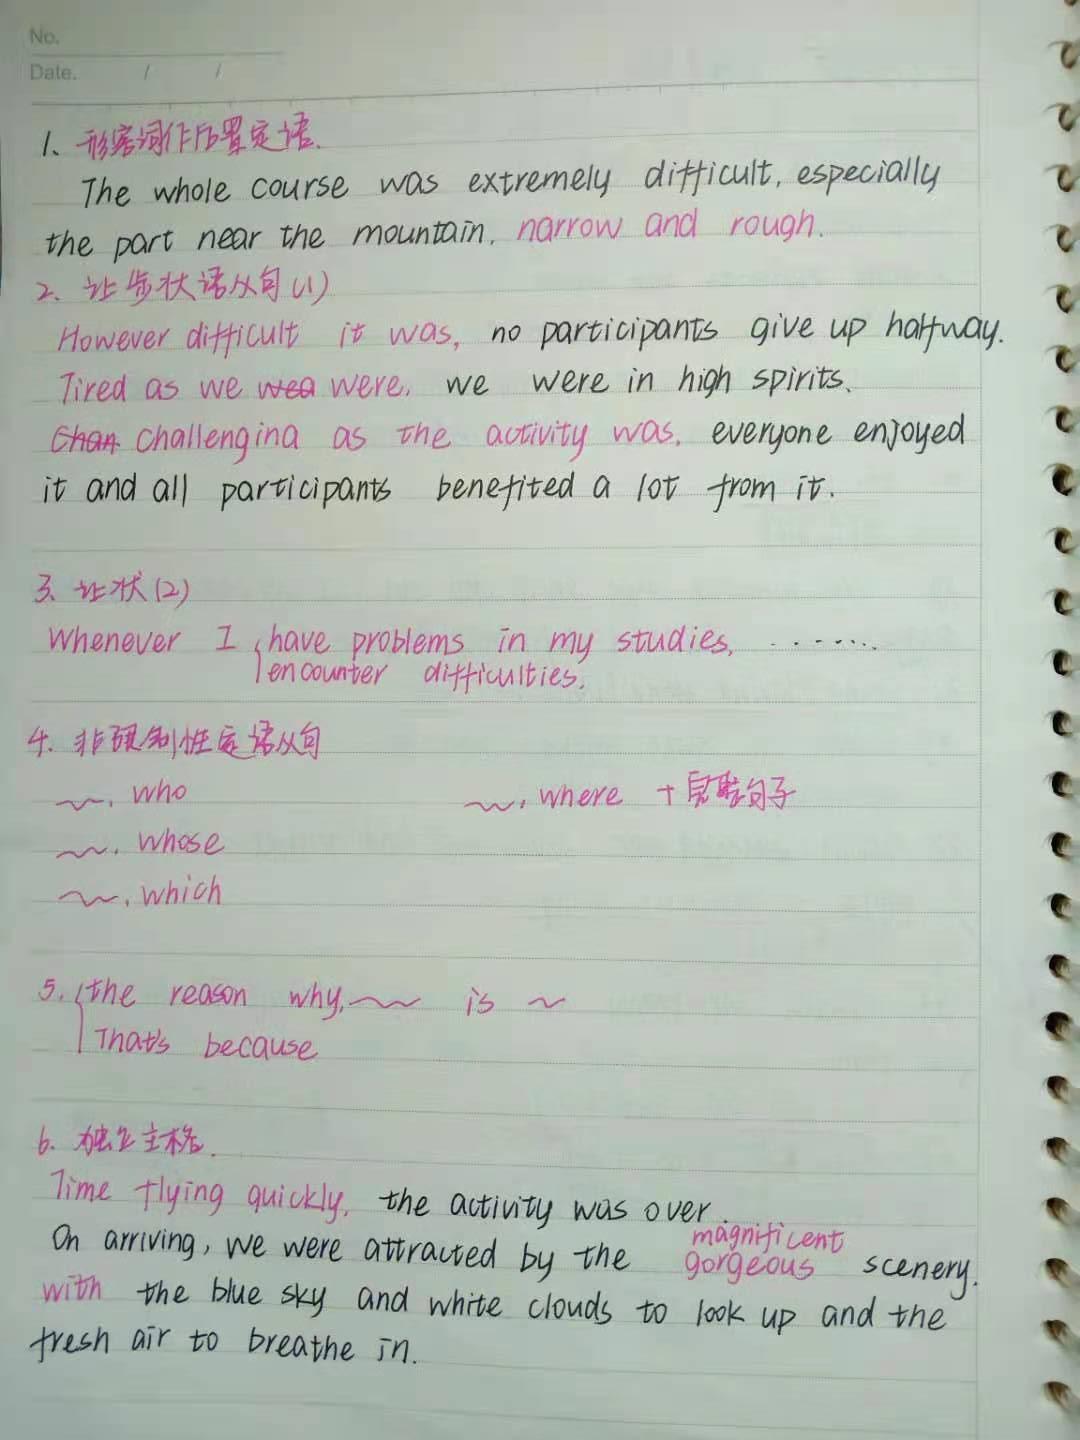 No.
Date. / /
1、形容词作后置定语.
The whole course was extremely difficult, especially
the part near the mountain, narrow and rough.
2、让步状语从句(1)
However difficult it was, no participants give up halfway.
Tired as we wea were, we were in high spirits.
Chan challenging as the activity was, everyone enjoyed
it and all participants benefited a lot from it.
3、让状(2)
Whenever I have problems in my studies, ........
encounter difficulties.
4、非限制性定语从句
~~, who ~~, where +完整句子
~~, whose
~~, which
5. the reason why, ~~ is ~
That's because
6、独立主格.
Time flying quickly, the activity was over.
magnificent
On arriving, we were attracted by the gorgeous scenery,
with the blue sky and white clouds to look up and the
fresh air to breathe in.